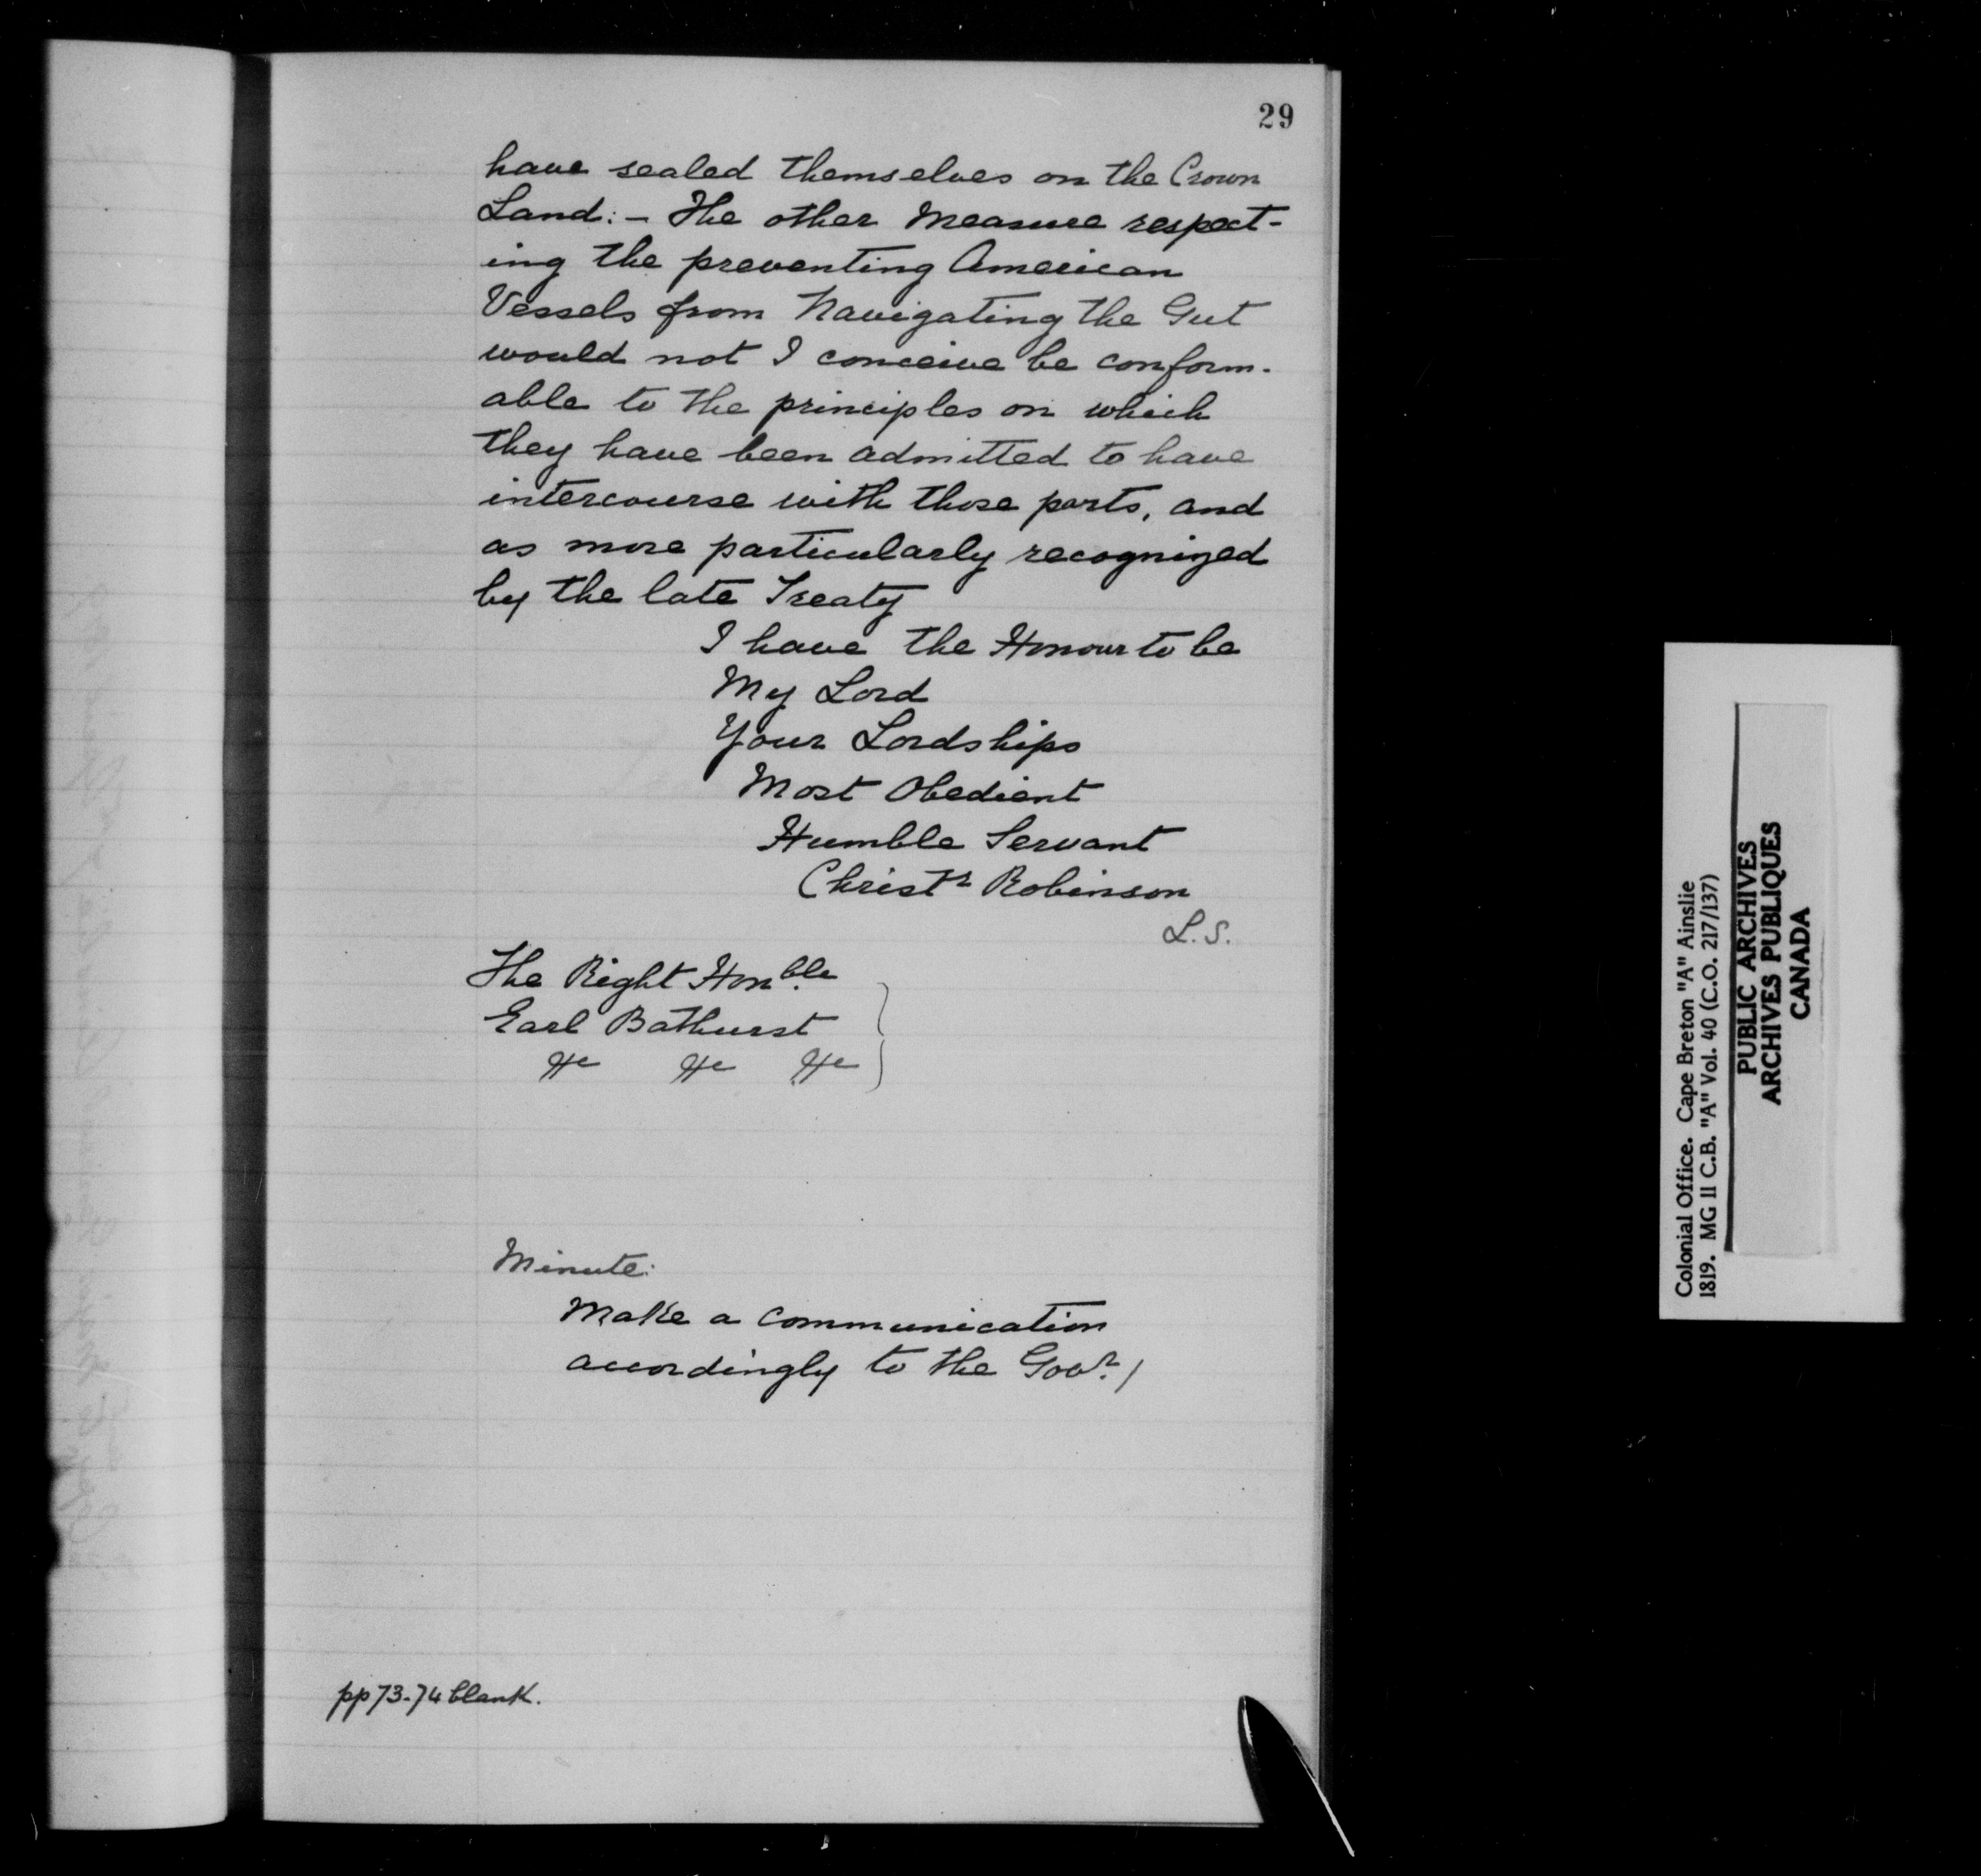 29
have sealed themselves on the Crown
Land:- The other Measure respect-
ing the preventing American
Vessels from Navigating the Gut
would not I conceive be conform-
able to the principles on which
they have been admitted to have
intercourse with those parts, and
as more particularly recognized
by the late Treaty
I have the Honour to be
My Lord
Your Lordships
Most Obedient
Humble Servant
Christr Robinson
L.S.
The Right Honble
Earl Bathurst
&c &c &c
Minute:
Make a communication
accordingly to the Govr.)
pp 73-74 blank.
Colonial Office. Cape Breton "A" Ainslie
1819. MG 11 C.B. "A" Vol. 40 (C.O. 217/137)
PUBLIC ARCHIVES
ARCHIVES PUBLIQUES
CANADA